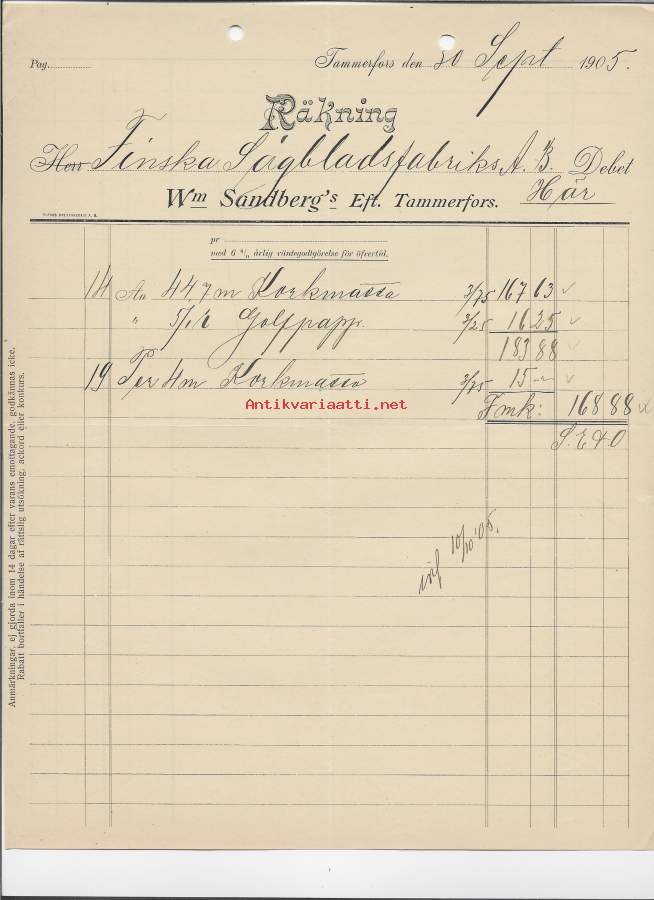 Pag.
Tammerfors den 30 Sept 1905.
Räkning
Herr Finska Sågbladsfabriks A.B. Debet
Wm Sandberg's Eft. Tammerfors. Här
pr
med 6 % årlig räntegodtgörelse för öfvertid.
14 An 44,7 m Korkmassa 3/75 167 63
" 5/1 r Golfpapp. 3/25 16 25
183 88
19 Per 4 m Korkmassa 3/75 15 -
Fmk: 168 88
S. E & O
10/10 '05.
Antikvariaatti.net
Anmärkningar, ej gjorda inom 14 dagar efter varans emottagande, godkännas icke.
Rabatt bortfaller i händelse af rättslig utsökning, ackord eller konkurs.